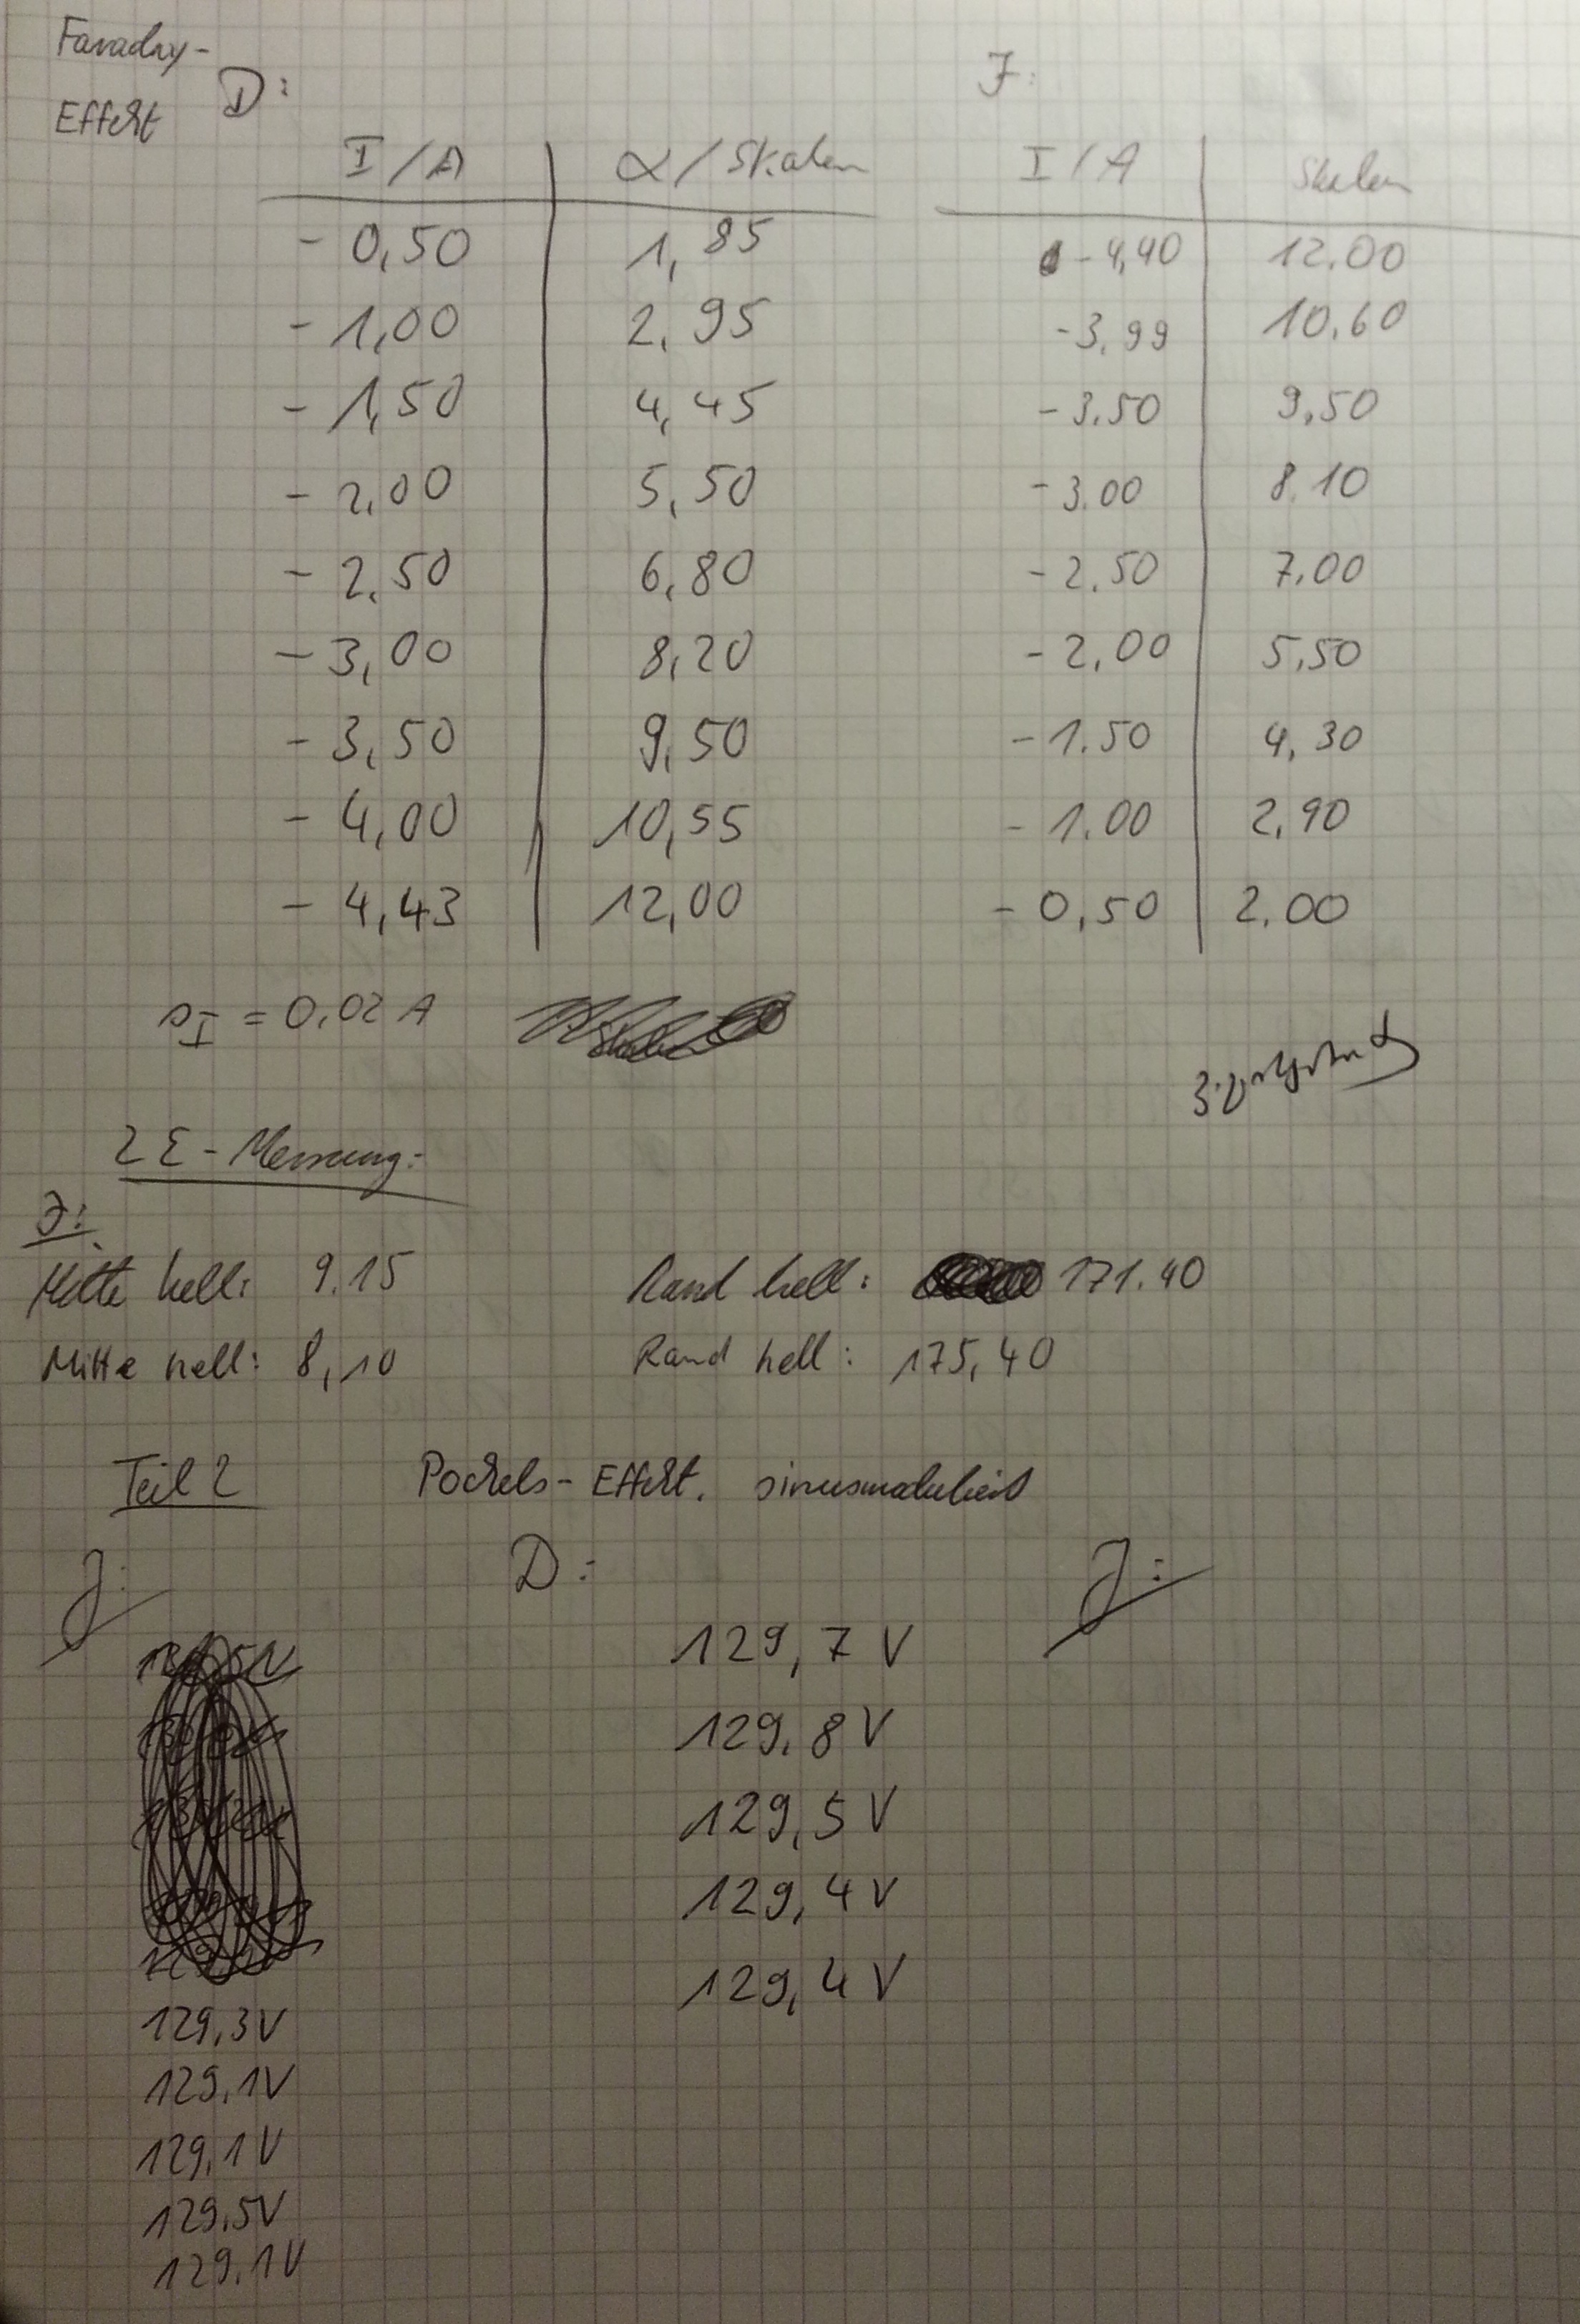 Faraday-
Effekt D:
I/A α/Skalen
- 0,50 1,85
- 1,00 2,95
- 1,50 4,45
- 2,00 5,50
- 2,50 6,80
- 3,00 8,20
- 3,50 9,50
- 4,00 10,55
- 4,43 12,00
J:
I/A Skalen
- 4,40 12.00
- 3,99 10,60
- 3.50 9,50
- 3.00 8.10
- 2.50 7,00
- 2,00 5,50
- 1.50 4,30
- 1.00 2,90
- 0,50 2,00
s_I = 0,02 A
2 E - Messung:
J:
Mitte hell: 9.15 Rand hell: 171.40
Mitte hell: 8,10 Rand hell: 175,40
Teil 2 Pockels-Effekt. sinusmoduliert
J:
129,3V
129,1V
129,1V
129,5V
129,1V
D:
129,7 V
129,8 V
129,5 V
129,4 V
129,4 V
J: